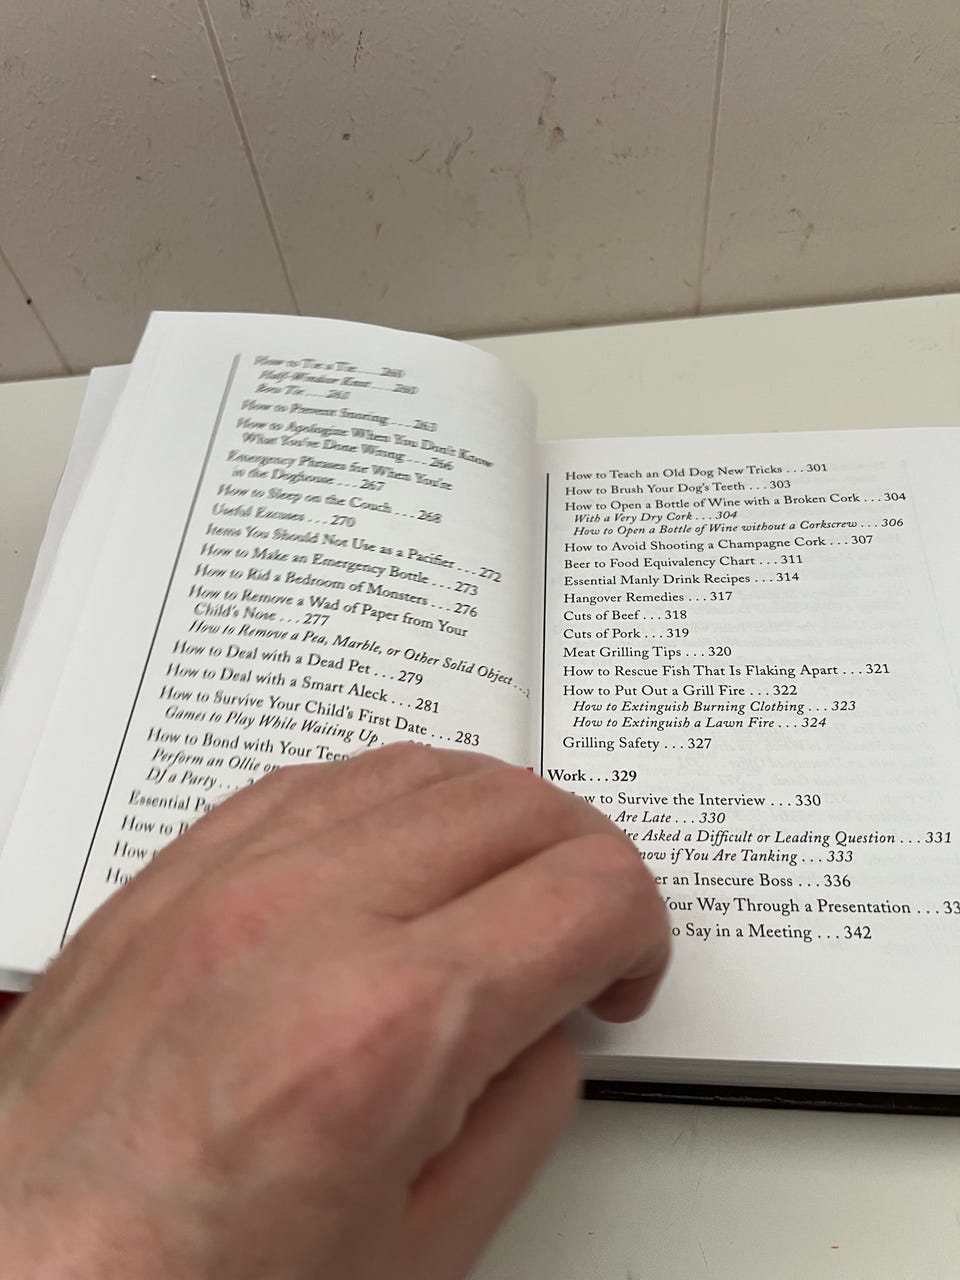 How to Tie a Tie . . . 260
Half-Windsor Knot . . . 260
Bow Tie . . . 261
How to Prevent Snoring . . . 263
How to Apologize When You Don't Know
What You've Done Wrong . . . 266
Emergency Phrases for When You're
in the Doghouse . . . 267
How to Sleep on the Couch . . . 268
Useful Excuses . . . 270
Items You Should Not Use as a Pacifier . . . 272
How to Make an Emergency Bottle . . . 273
How to Rid a Bedroom of Monsters . . . 276
How to Remove a Wad of Paper from Your
Child's Nose . . . 277
How to Remove a Pea, Marble, or Other Solid Object . . .
How to Deal with a Dead Pet . . . 279
How to Deal with a Smart Aleck . . . 281
How to Survive Your Child's First Date . . . 283
Games to Play While Waiting Up . .
How to Bond with Your
Perform an Ollie on
DJ a Party . . .
Essential
How to
How
How
How to Teach an Old Dog New Tricks . . . 301
How to Brush Your Dog's Teeth . . . 303
How to Open a Bottle of Wine with a Broken Cork . . . 304
With a Very Dry Cork . . . 304
How to Open a Bottle of Wine without a Corkscrew . . . 306
How to Avoid Shooting a Champagne Cork . . . 307
Beer to Food Equivalency Chart . . . 311
Essential Manly Drink Recipes . . . 314
Hangover Remedies . . . 317
Cuts of Beef . . . 318
Cuts of Pork . . . 319
Meat Grilling Tips . . . 320
How to Rescue Fish That Is Flaking Apart . . . 321
How to Put Out a Grill Fire . . . 322
How to Extinguish Burning Clothing . . . 323
How to Extinguish a Lawn Fire . . . 324
Grilling Safety . . . 327
Work . . . 329
to Survive the Interview . . . 330
Are Late . . . 330
Asked a Difficult or Leading Question . . . 331
if You Are Tanking . . . 333
an Insecure Boss . . . 336
Your Way Through a Presentation . . . 33
to Say in a Meeting . . . 342